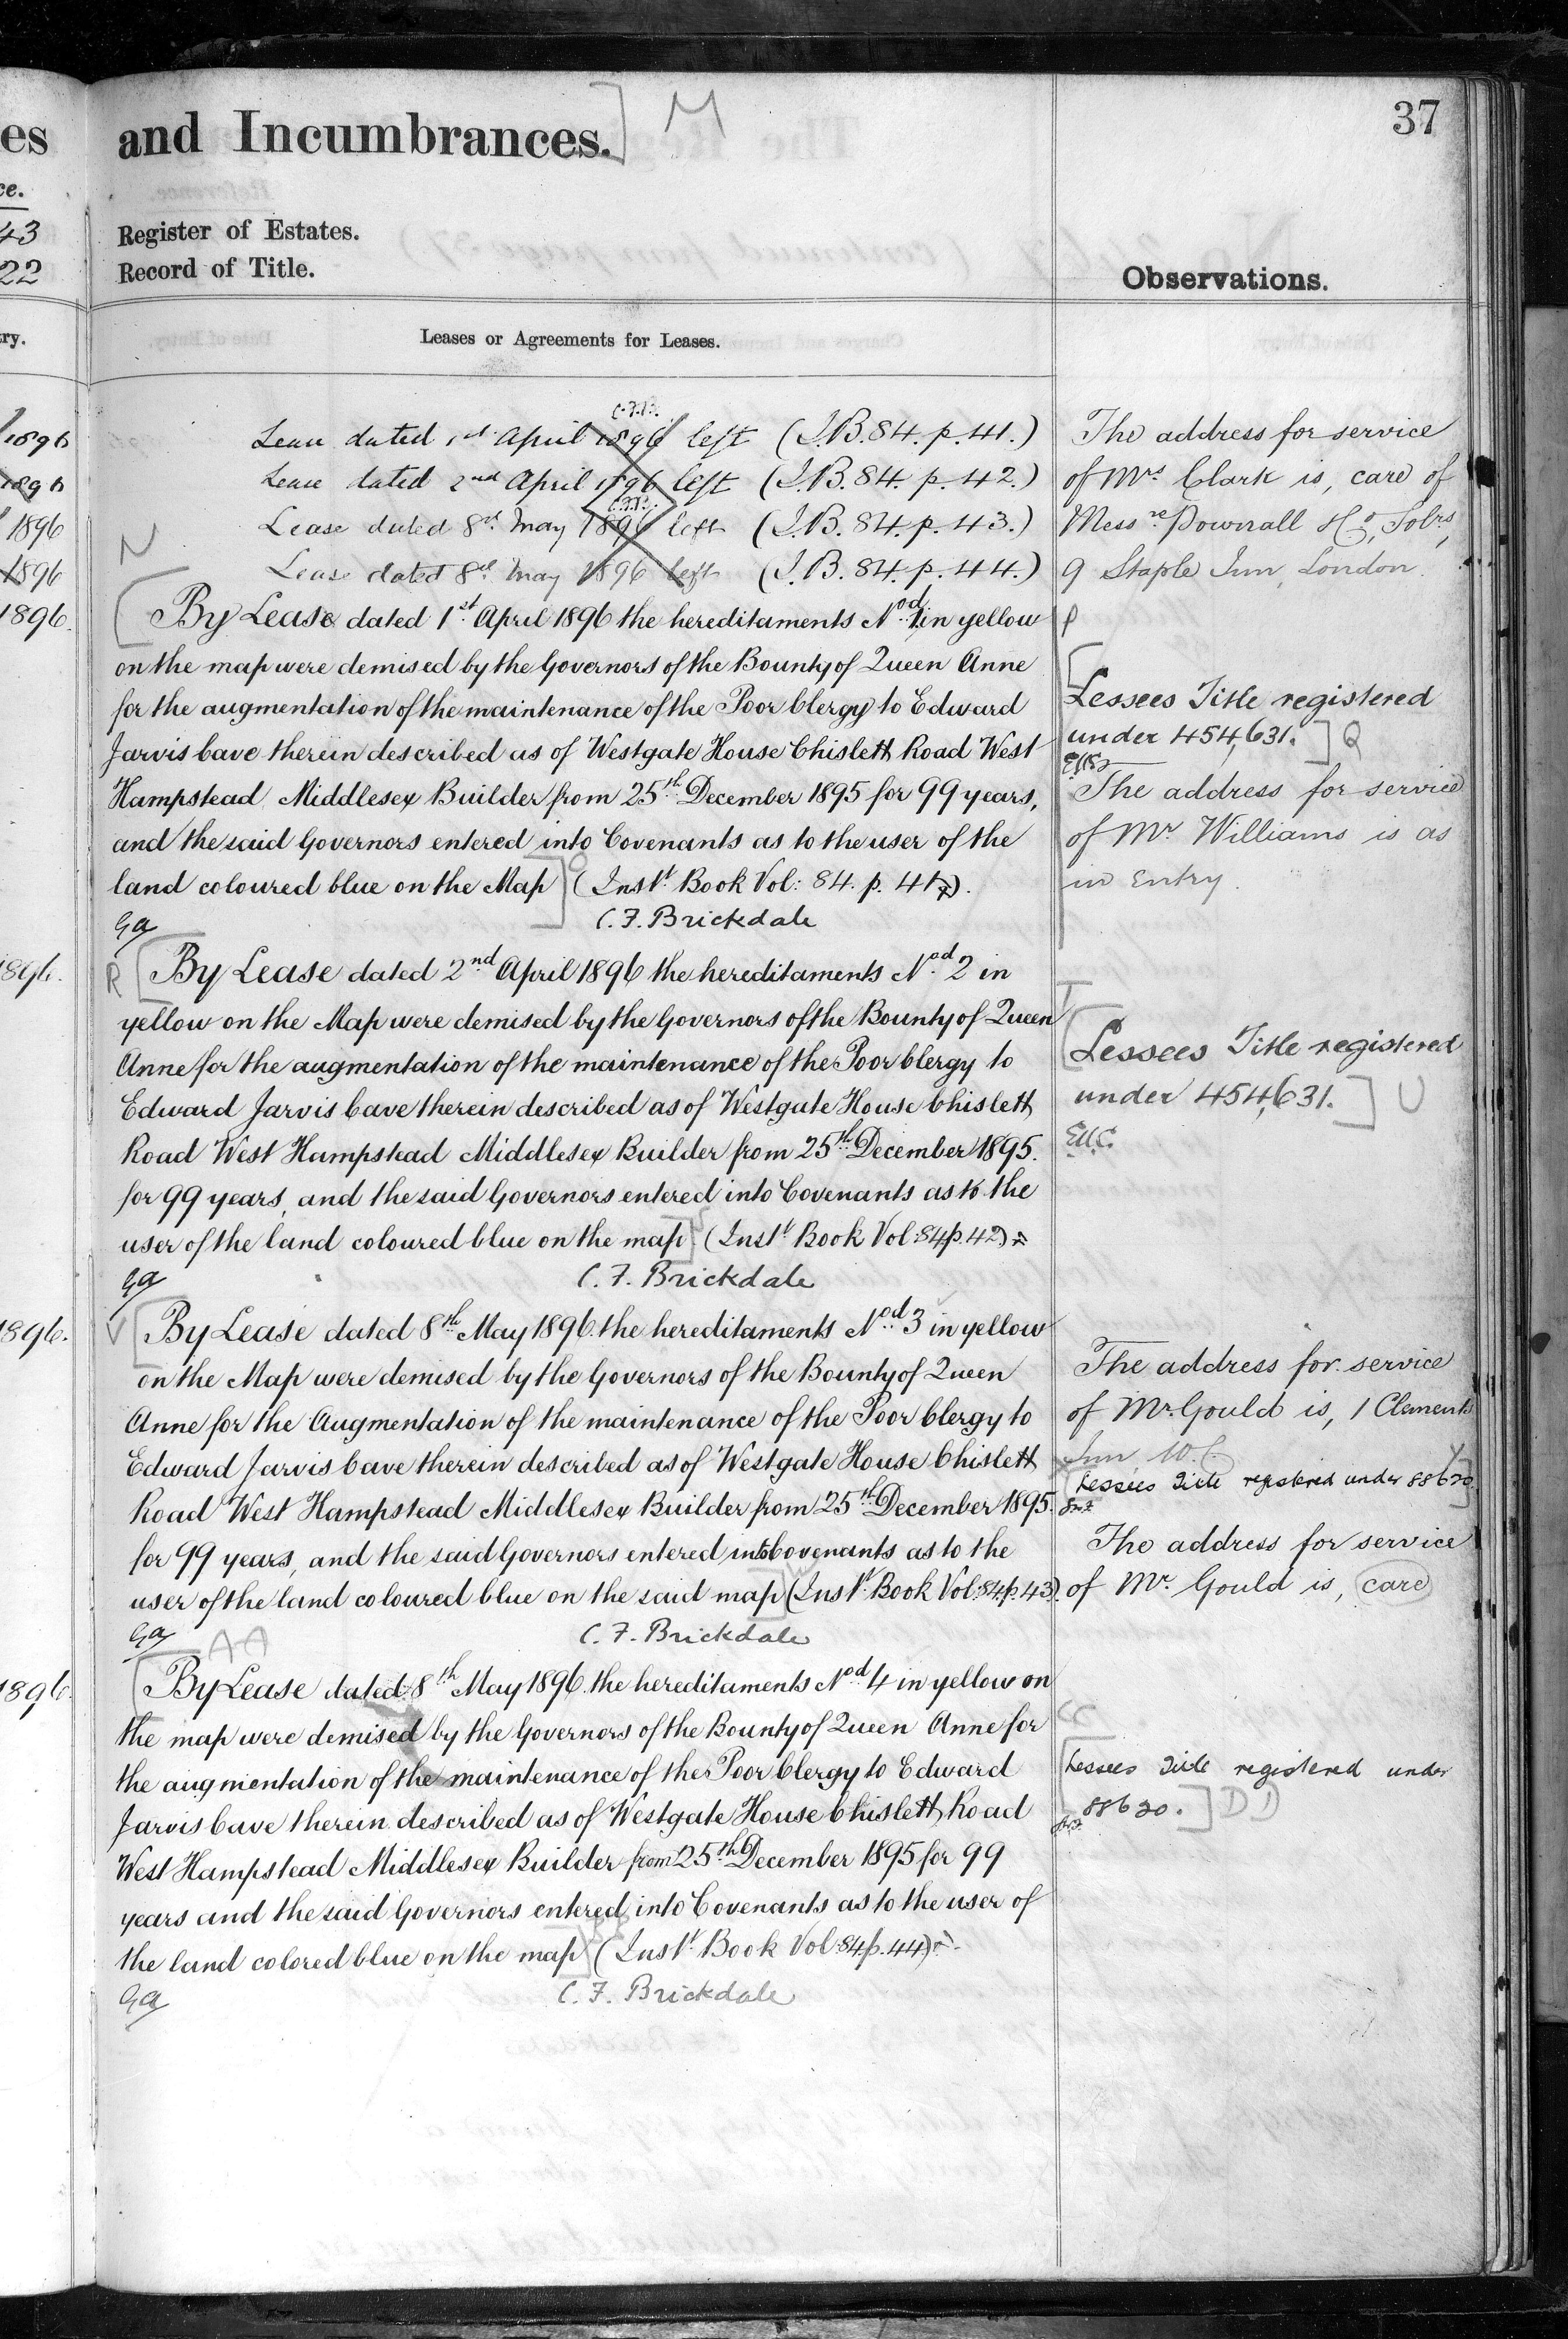 es
ce.
43
22
ry.
1896
1896
1896
1896
1896.
1896.
1896.
1896.
and Incumbrances.] M
Register of Estates.
Record of Title.
Leases or Agreements for Leases.
C.F.B.
Lease dated 1st April 1896 left (I.B. 84. p. 41.)
Lease dated 2nd April 1896 left (I.B. 84. p. 42.)
Lease dated 8th May 1896 left (I.B. 84. p. 43.)
Lease dated 8th May 1896 left (I.B. 84. p. 44.)
N
[By Lease dated 1st April 1896 the hereditaments No.d 1 in yellow
on the map were demised by the Governors of the Bounty of Queen Anne
for the augmentation of the maintenance of the Poor Clergy to Edward
Jarvis Cave therein described as of Westgate House Chislett Road West
Hampstead Middlesex Builder from 25th December 1895 for 99 years,
and the said Governors entered into Covenants as to the user of the
land coloured blue on the Map] O (Inst. Book Vol: 84. p. 41).
C. F. Brickdale
GA
R [By Lease dated 2nd April 1896 the hereditaments No.d 2 in
yellow on the Map were demised by the Governors of the Bounty of Queen
Anne for the augmentation of the maintenance of the Poor Clergy to
Edward Jarvis Cave therein described as of Westgate House Chislett
Road West Hampstead Middlesex Builder from 25th December 1895.
for 99 years, and the said Governors entered into Covenants as to the
user of the land coloured blue on the map] S (Inst. Book Vol: 84 p. 42)
GA C. F. Brickdale
V [By Lease dated 8th May 1896. the hereditaments No.d 3 in yellow
on the Map were demised by the Governors of the Bounty of Queen
Anne for the Augmentation of the maintenance of the Poor Clergy to
Edward Jarvis Cave therein described as of Westgate House Chislett
Road West Hampstead Middlesex Builder from 25th December 1895.
for 99 years, and the said Governors entered into Covenants as to the
user of the land coloured blue on the said map] (Inst. Book Vol: 84. p. 43).
GA C. F. Brickdale
AA
[By Lease dated 8th May 1896. the hereditaments No.d 4 in yellow on
the map were demised by the Governors of the Bounty of Queen Anne for
the augmentation of the maintenance of the Poor Clergy to Edward
Jarvis Cave therein described as of Westgate House Chislett Road
West Hampstead Middlesex Builder from 25th December 1895 for 99
years and the said Governors entered into Covenants as to the user of
the land colored blue on the map] (Inst. Book Vol: 84 p. 44)
GA C. F. Brickdale
37
Observations.
The address for service
of Mrs. Clark is, care of
Messrs Pownall & Co, Solrs,
9 Staple Inn, London.
P
[Lessees Title registered
under 454,631.] Q
The address for service
of Mr. Williams is as
in Entry.
T
[Lessees Title registered
under 454,631.] U
The address for service
of Mr. Gould is, 1 Clements
Inn W.C.
Y
[Lessees Title registered under 88620]
The address for service
of Mr. Gould is, care
CC
[Lessees Title registered under
88620.] DD